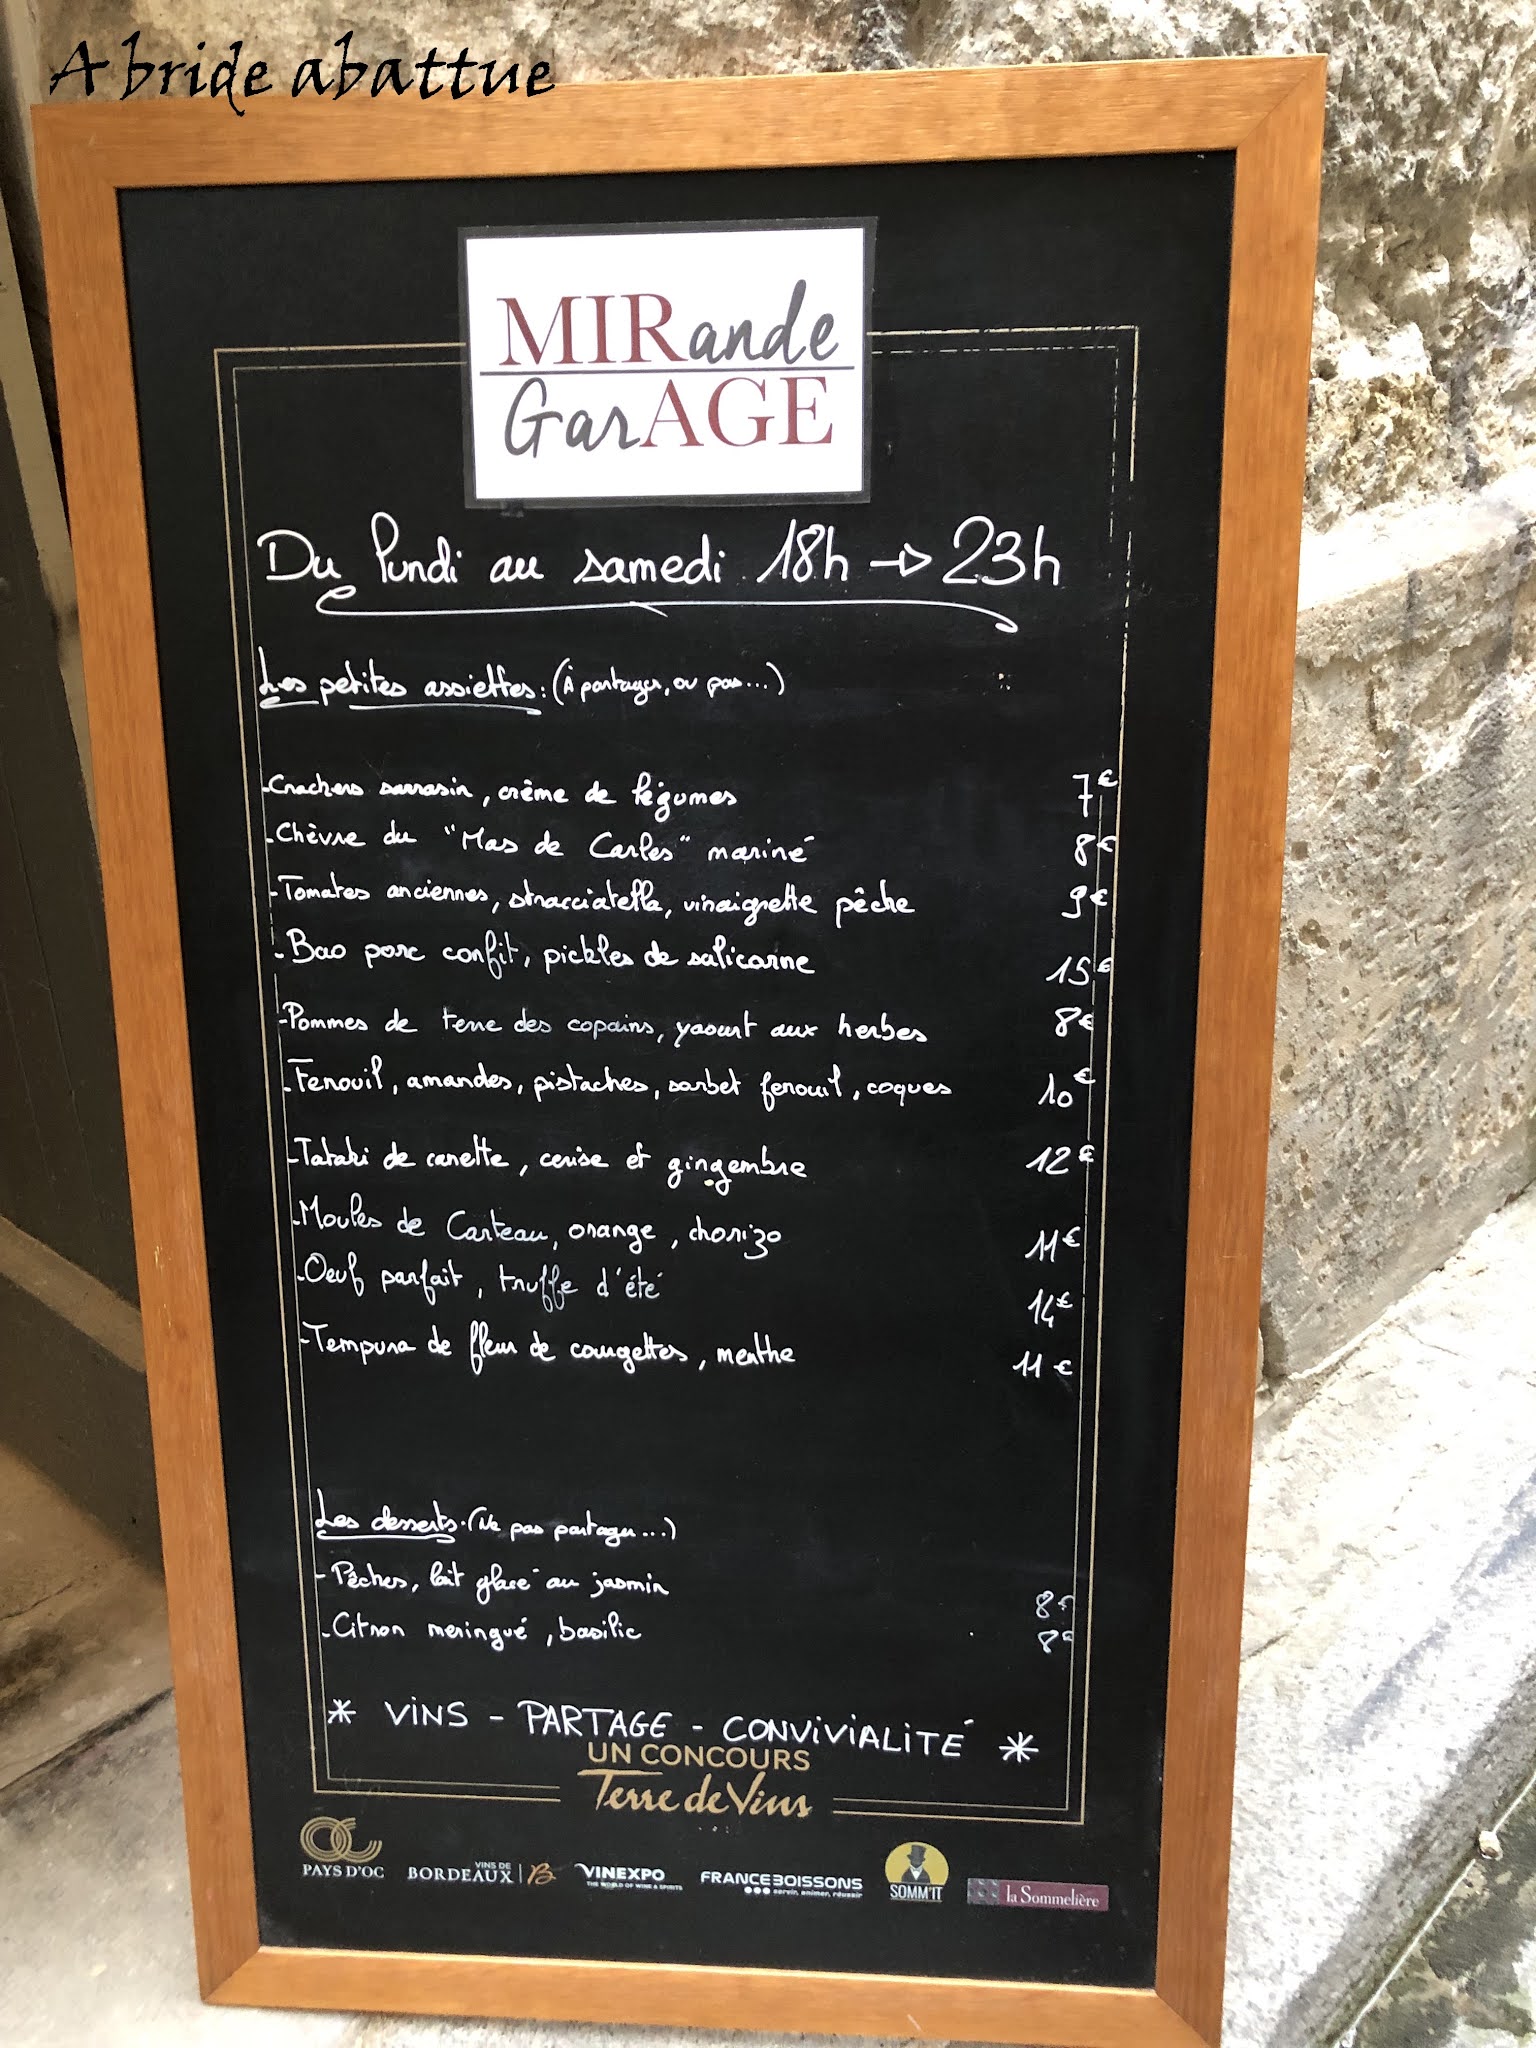 A bride abattue
MIRande
GarAGE
Du lundi au samedi 18h → 23h
Les petites assiettes : (À partager, ou pas...)
- Crackers sarrasin, crème de légumes 7€
- Chèvre du "Mas de Carles" mariné 8€
- Tomates anciennes, stracciatella, vinaigrette pêche 9€
- Bao porc confit, pickles de salicorne 15€
- Pommes de terre des copains, yaourt aux herbes 8€
- Fenouil, amandes, pistaches, sorbet fenouil, coques 10€
- Tataki de canette, cerise et gingembre 12€
- Moules de Carteau, orange, chorizo 11€
- Oeuf parfait, truffe d'été 14€
- Tempura de fleur de courgettes, menthe 11€
Les desserts. (Ne pas partager...)
- Pêches, lait glacé au jasmin 8€
- Citron meringué, basilic 8€
* VINS - PARTAGE - CONVIVIALITÉ *
UN CONCOURS
Terre de Vins
PAYS D'OC
VINS DE
BORDEAUX | B
VINEXPO
THE WORLD OF WINE & SPIRITS
FRANCEBOISSONS
servir, animer, réussir
SOMM'IT
la Sommelière